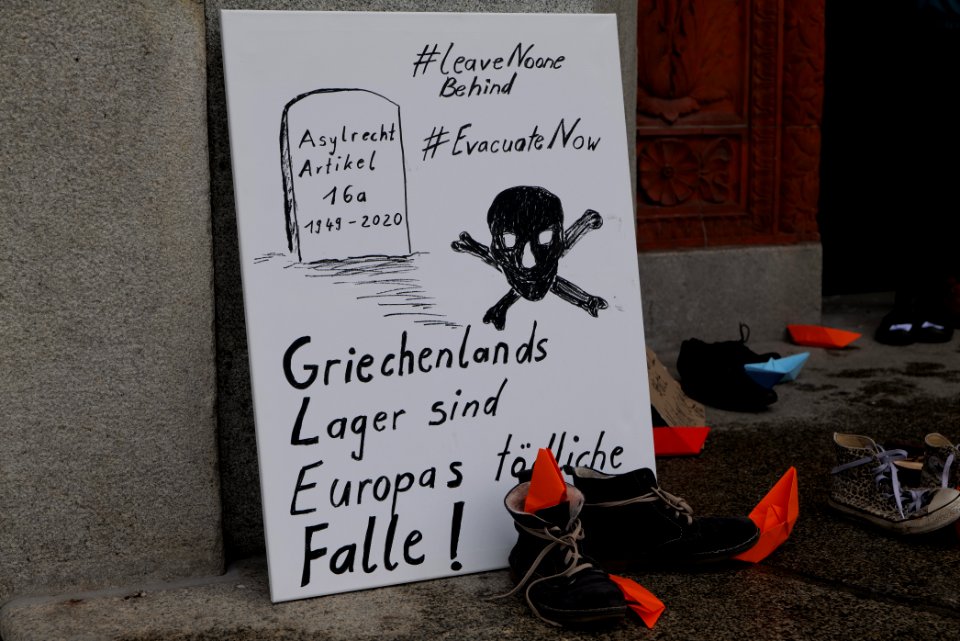 #LeaveNoone
Behind
#EvacuateNow
Asylrecht
Artikel
16a
1949-2020
Griechenlands
Lager sind
Europas tödliche
Falle!